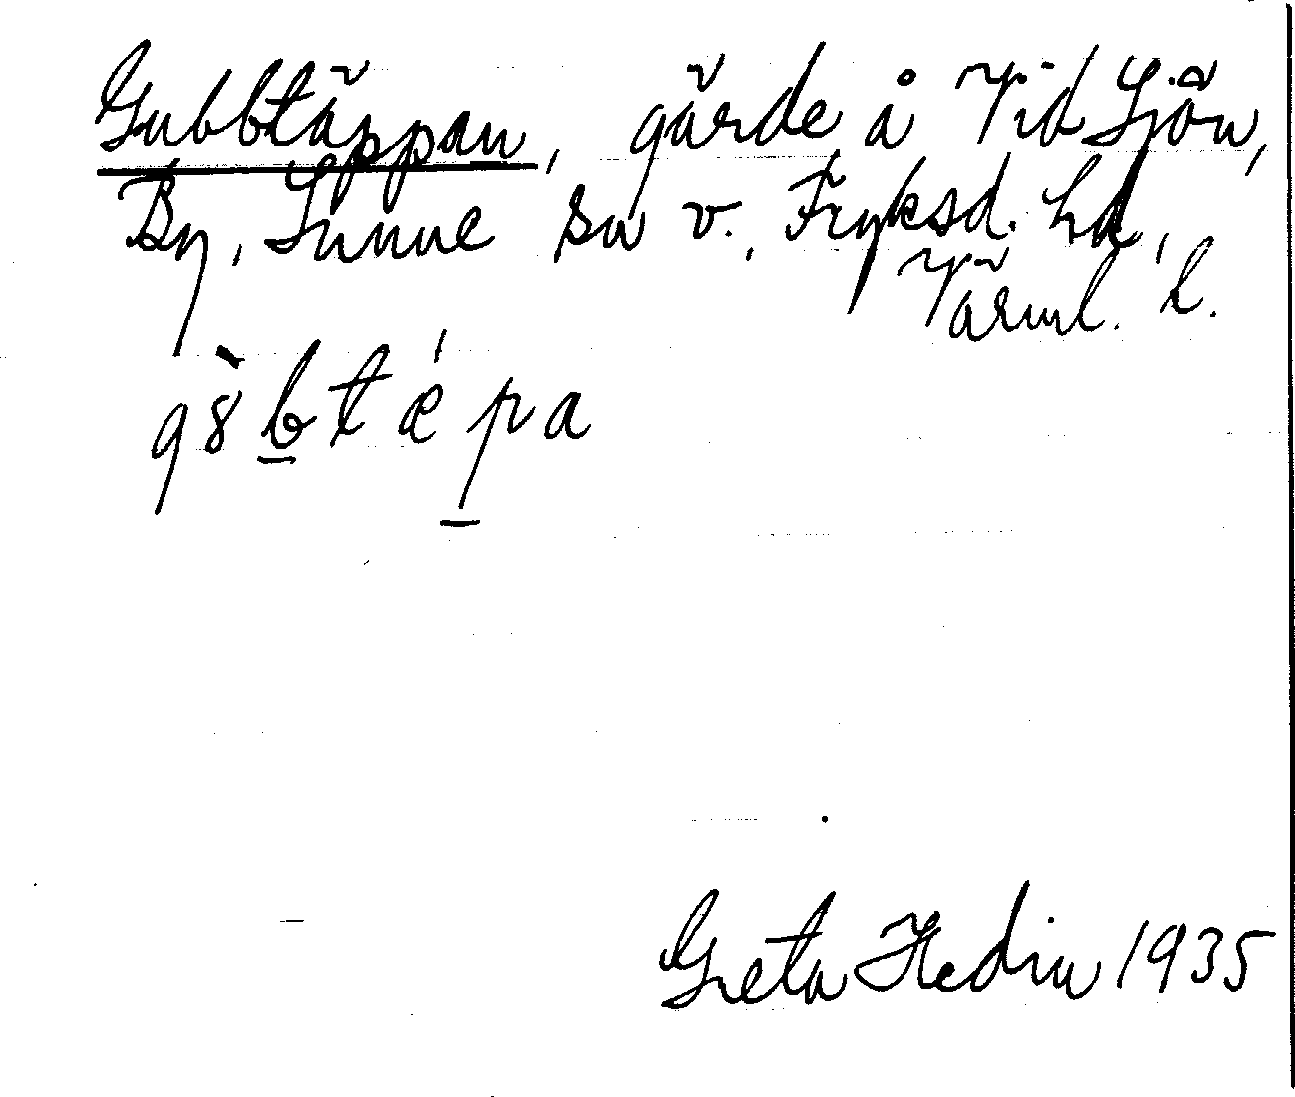 Gubbtäppan, gärde å Vid Sjön,
By, Sunne sn v., Fryksd. hd,
Värml. l.
g8̀b̲tǽp̲a
Greta Hedin 1935